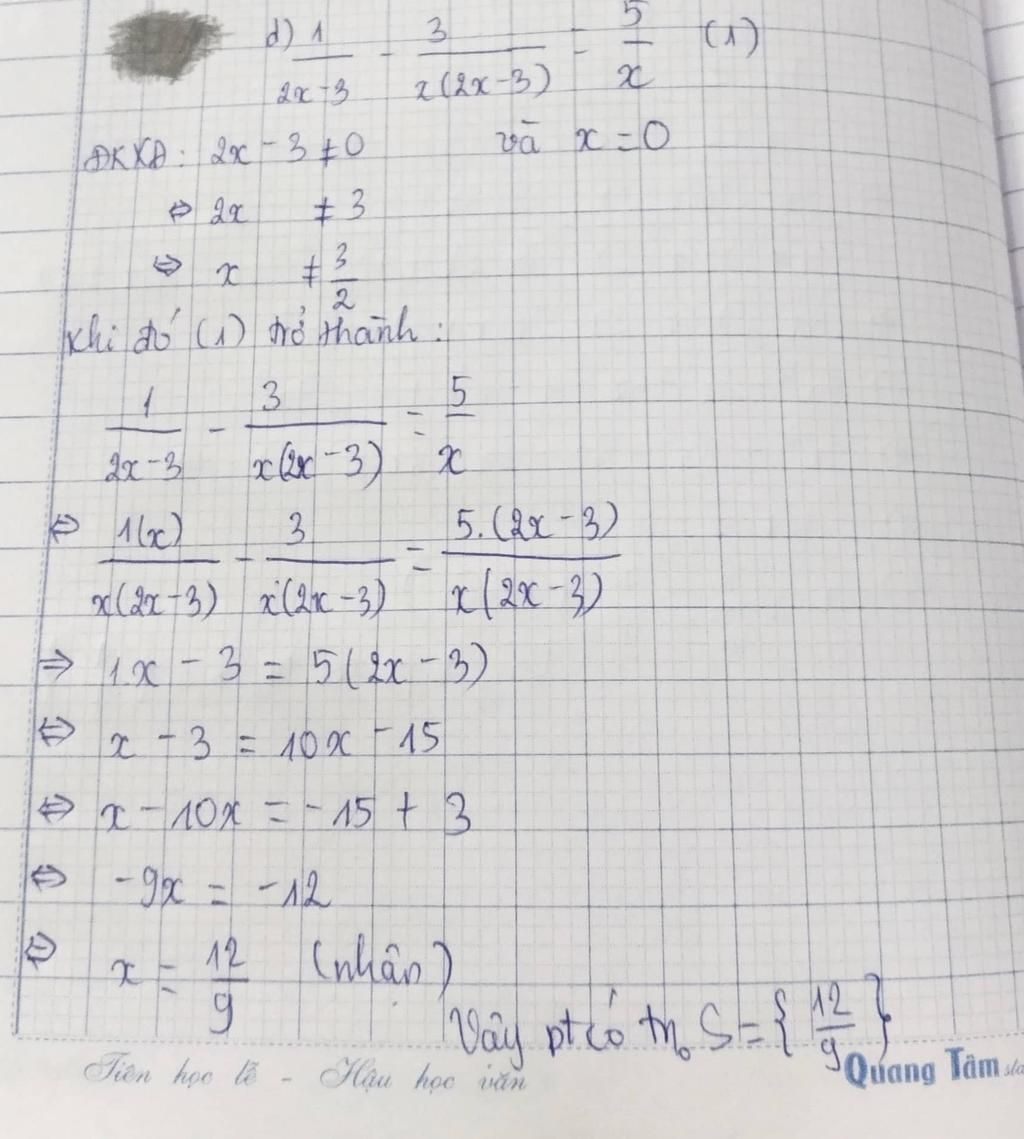 d) 1/(2x-3) - 3/(x(2x-3)) = 5/x (1)
ĐKXĐ: 2x - 3 ≠ 0 và x = 0
⇔ 2x ≠ 3
⇔ x ≠ 3/2
Khi đó (1) trở thành:
1/(2x-3) - 3/(x(2x-3)) = 5/x
⇔ 1(x)/(x(2x-3)) - 3/(x(2x-3)) = 5.(2x-3)/(x(2x-3))
⇒ 1x - 3 = 5(2x-3)
⇔ x - 3 = 10x - 15
⇔ x - 10x = -15 + 3
⇔ -9x = -12
⇔ x = 12/9 (nhận)
Vậy pt có tn₀ S = {12/9}
Tiên học lễ - Hậu học văn
Quang Tâm